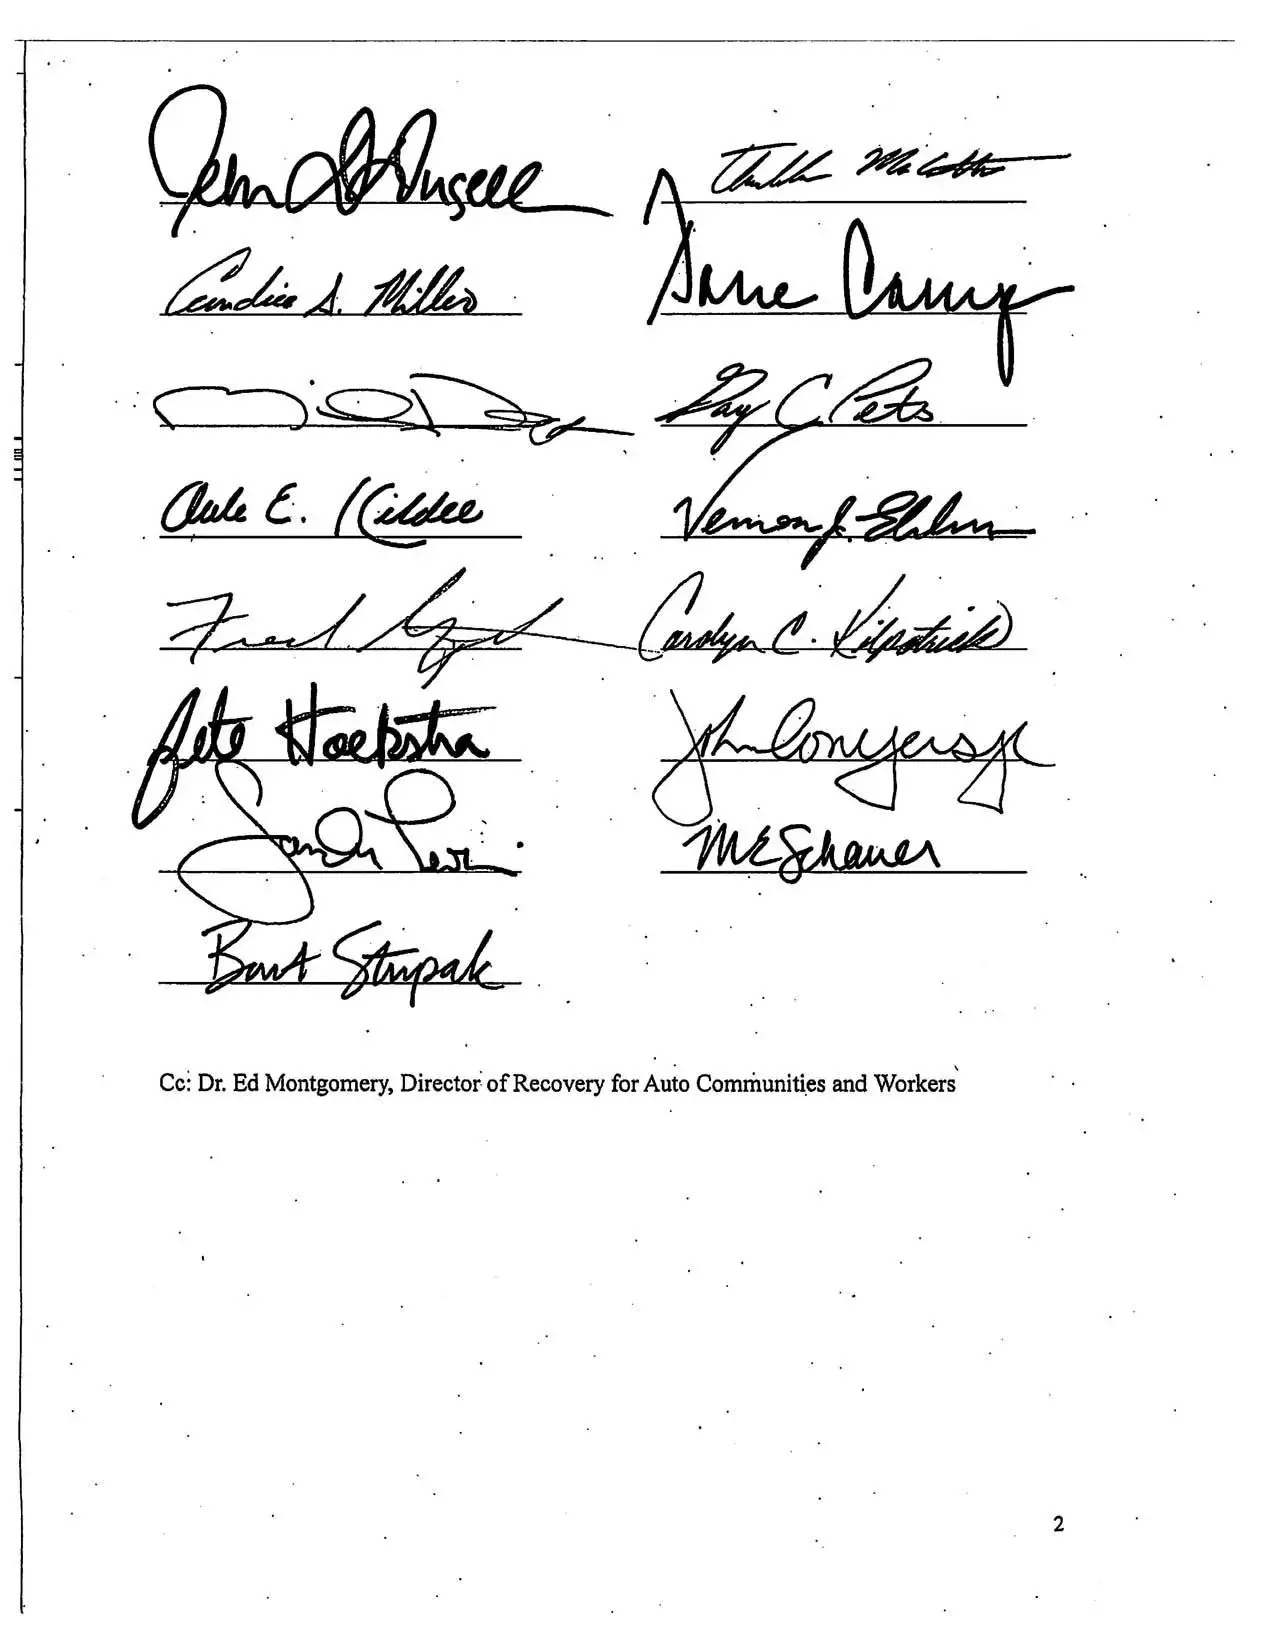 John D Dingell
Candice S. Miller Dave Camp
Gary C Peters
Dale E. Kildee Vernon J. Ehlers
Fred Upton Carolyn C. Kilpatrick
Pete Hoekstra John Conyers Jr
Sandy Levin M E Schauer
Bart Stupak
Cc: Dr. Ed Montgomery, Director of Recovery for Auto Communities and Workers
2